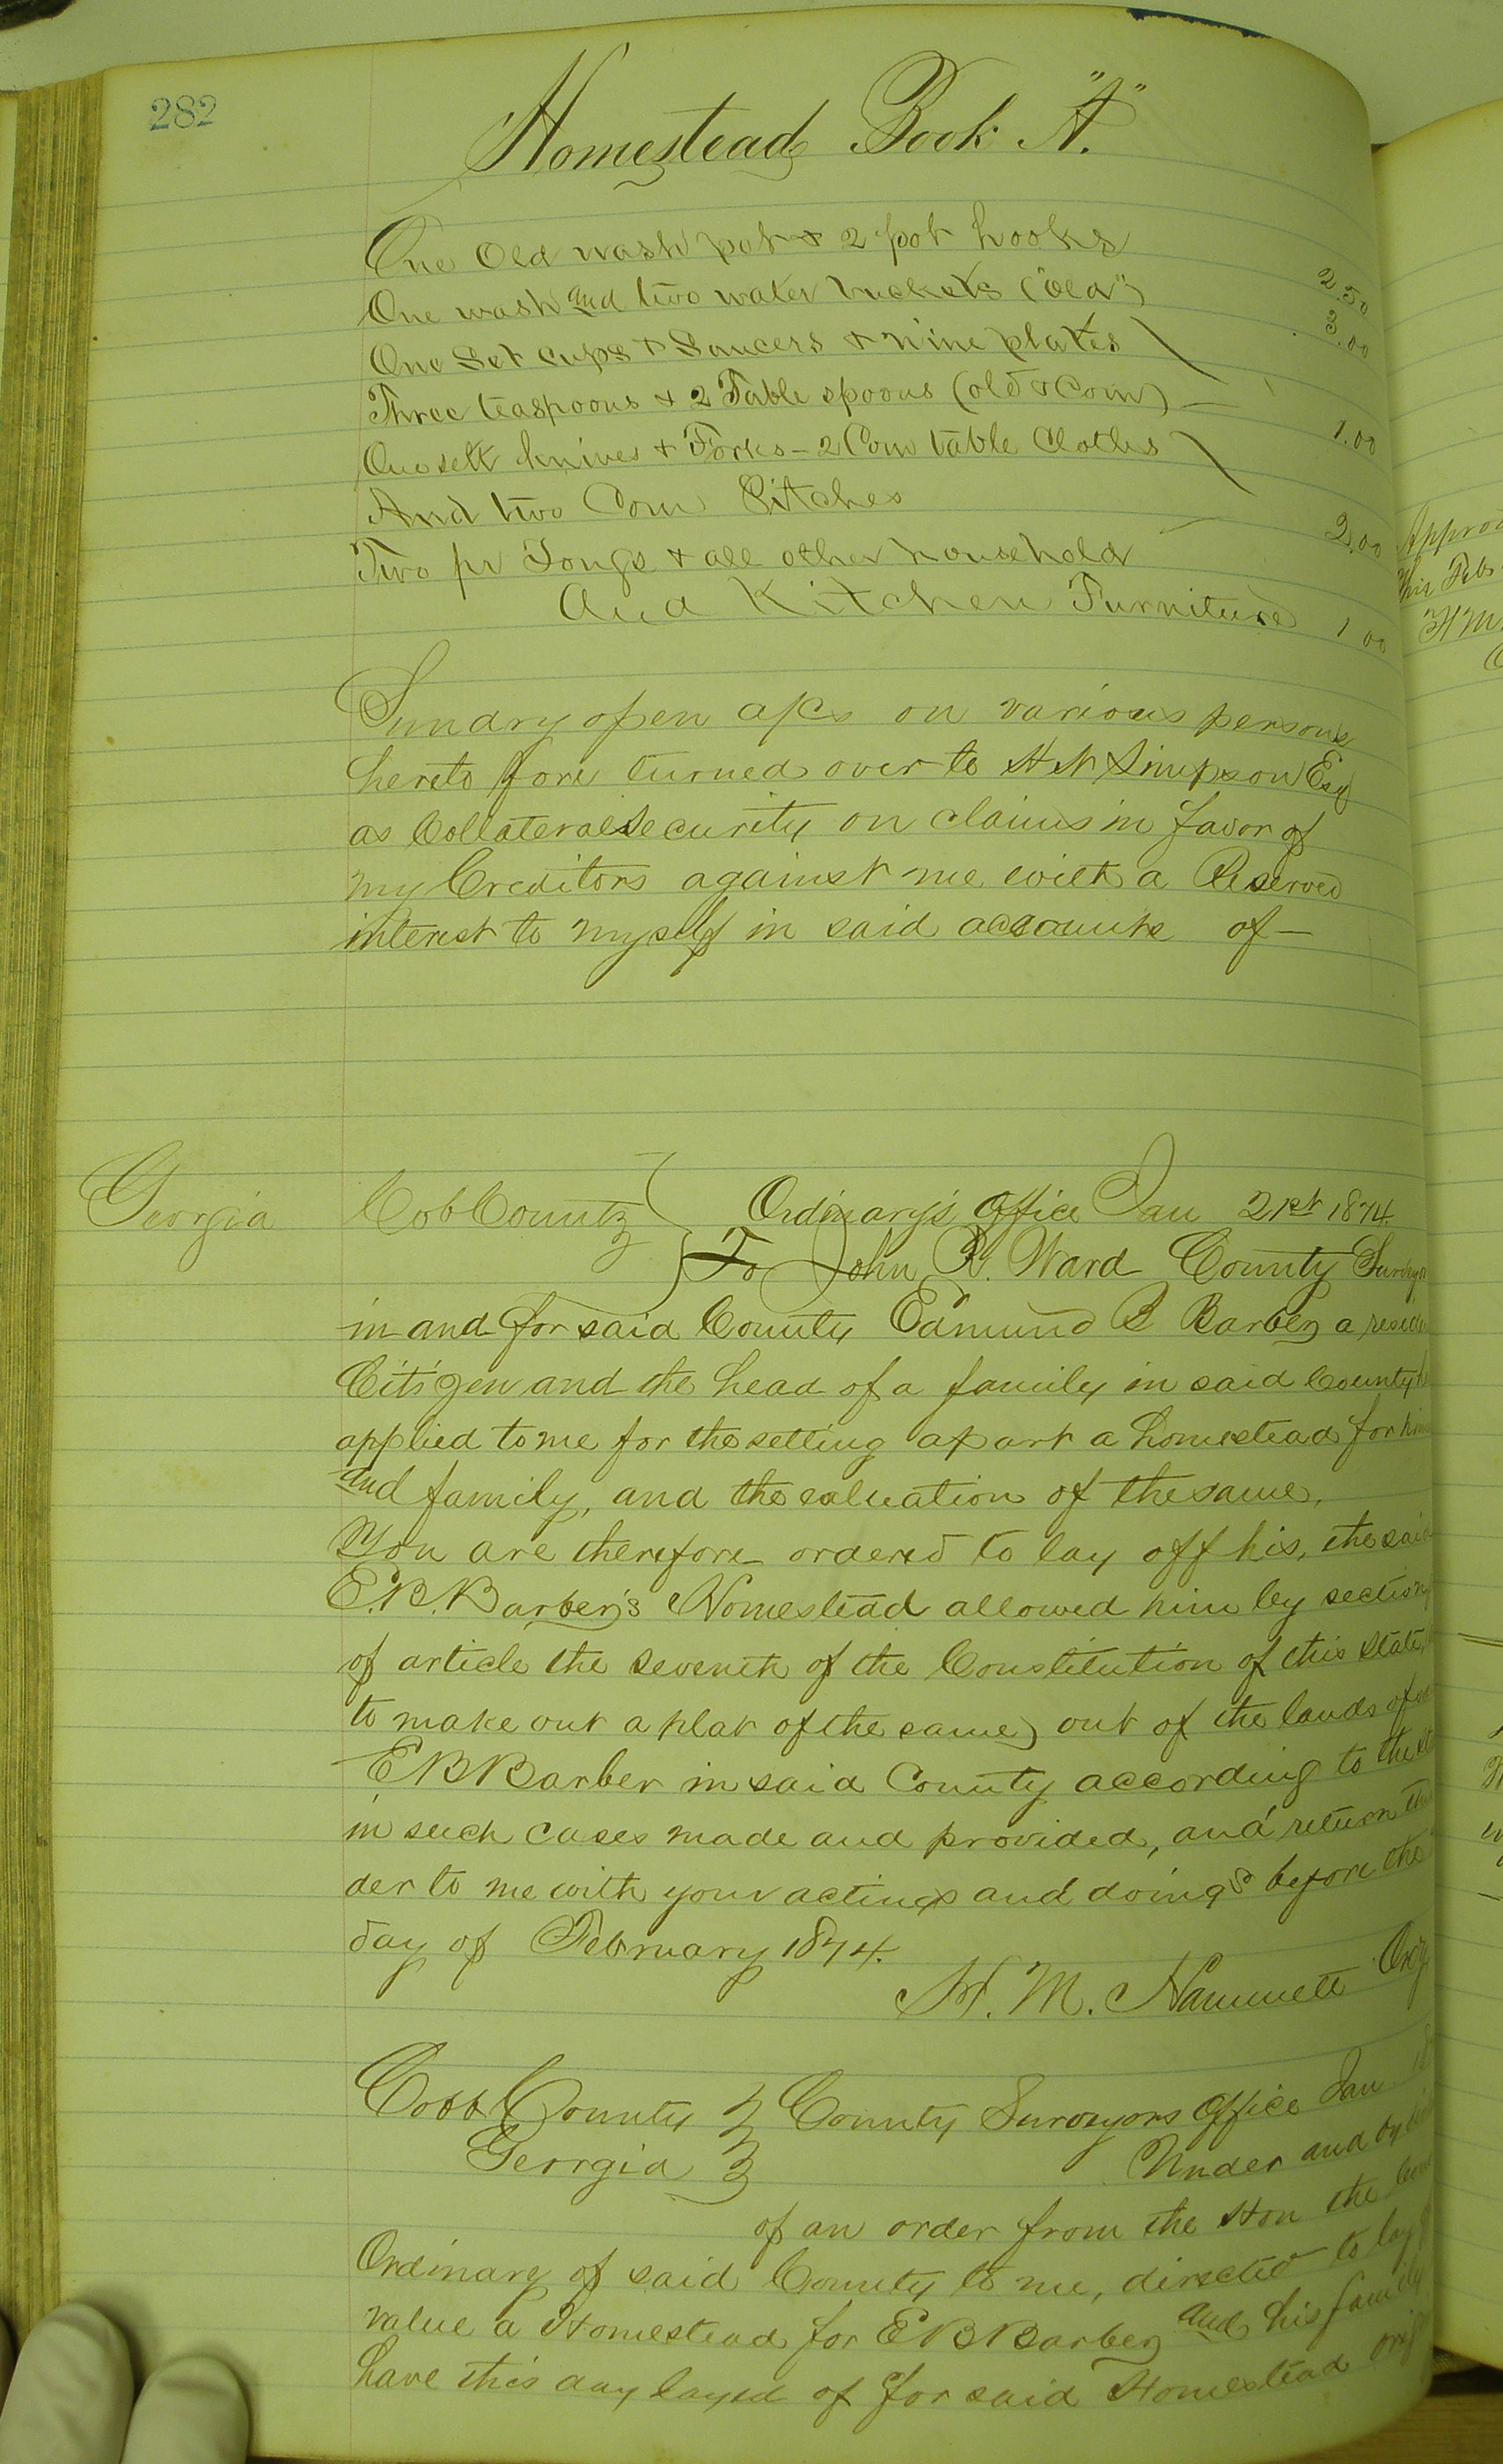 282
Homestead Book "A."
One Old wash pot & 2 pot hooks 2.50
One wash and two water buckets ("old") 3.00
One Set cups & Saucers & nine plates
Three teaspoons & 2 Table spoons (old & Com) — 1.00
One sett knives & Forks - 2 Com table Cloths
And two Com Pitches 2.00
Two pr Tongs & all other household
And Kitchen Furniture 1 00
Sundry open a/cs on various persons
hereto fore turned over to Simpson Esq
as Collateral Security on claims in favor of
my Creditors against me with a Reserved
interest to myself in said accounts of —
Georgia Cob County Ordinary's Office Jan 21st 1874.
To John R. Ward County Surveyor
in and for said County Edmund B Barber a reside
Citizen and the head of a family in said County h
applied to me for the setting apart a homestead for him
and family, and the valuation of the same.
You are therefore ordered to lay off his, the said
E.B. Barber's Homestead allowed him by section
of article the seventh of the Constitution of this State,
to make out a plat of the same out of the lands of
E B Barber in said County according to the
in such cases made and provided, and return
der to me with your actings and doings before the
day of February 1874.
H. M. Hammett Ory
Cobb County County Surveyors Office Jan
Georgia Under and by
of an order from the Hon the
Ordinary of said County to me, directed to lay
value a Homestead for E B Barber and his family
have this day layed of for said Homestead
Approv
this Feb
H M